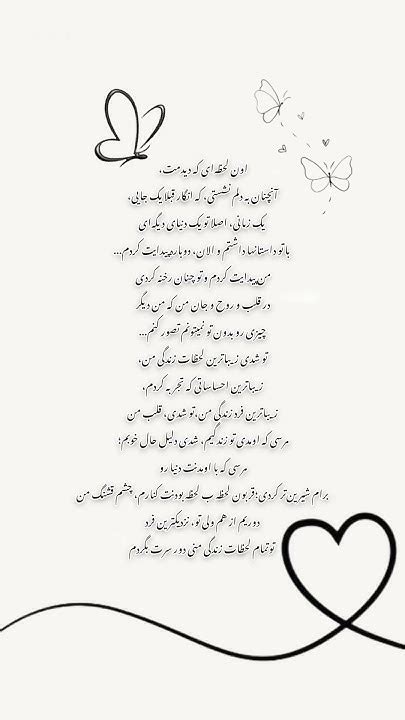 اون لحظه‌ای که دیدمت،
آنچنان به دلم نشستی، که انگار قبلا یک جایی،
یک زمانی، اصلا تو یک دنیای دیگه‌ای
با تو داستانها داشتم و الان، دوباره پیدایت کردم...
من پیدایت کردم و تو چنان رخنه کردی
در قلب و روح و جان من که من دیگر
چیزی رو بدون تو نمیتونم تصور کنم...
تو شدی زیباترین لحظات زندگی من،
زیباترین احساساتی که تجربه کردم،
زیباترین فرد زندگی من، تو شدی، قلب من
مرسی که اومدی تو زندگیم، شدی دلیل حال خوبم؛
مرسی که با اومدنت دنیا رو
برام شیرین‌تر کردی؛ قربون لحظه ب لحظه بودنت کنارم، چشم قشنگ من
دوریم از هم ولی تو، نزدیکترین فرد
تو تمام لحظات زندگی منی دور سرت بگردم